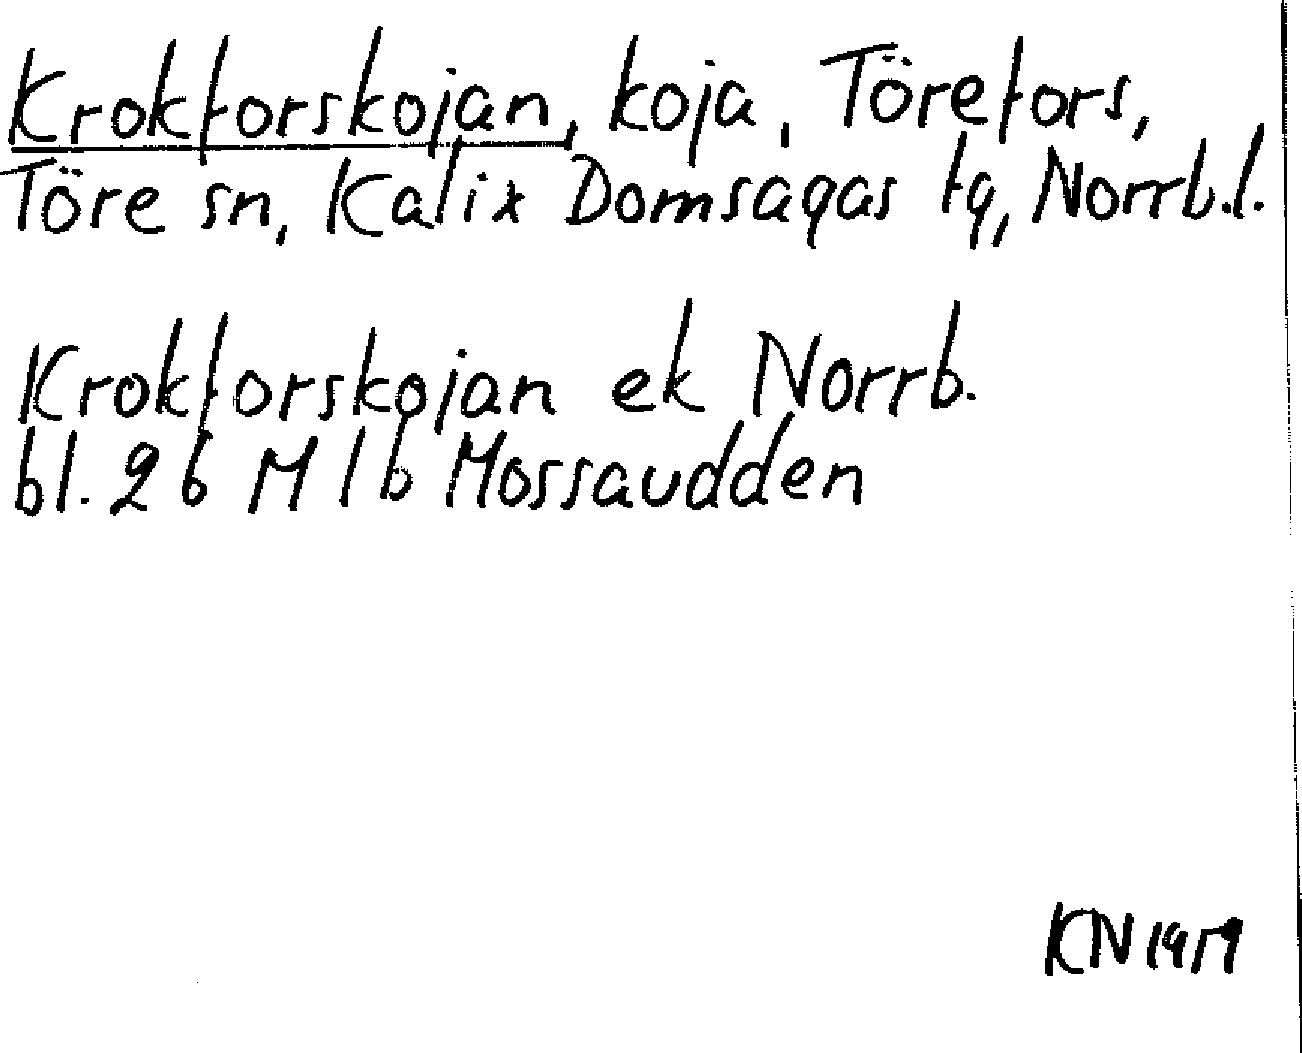 Krokforskojan, koja, Törefors,
Töre sn, Kalix Domsagas tg, Norrb.l.
Krokforskojan ek Norrb.
bl. 26 M 1b Mossaudden
KN 1959